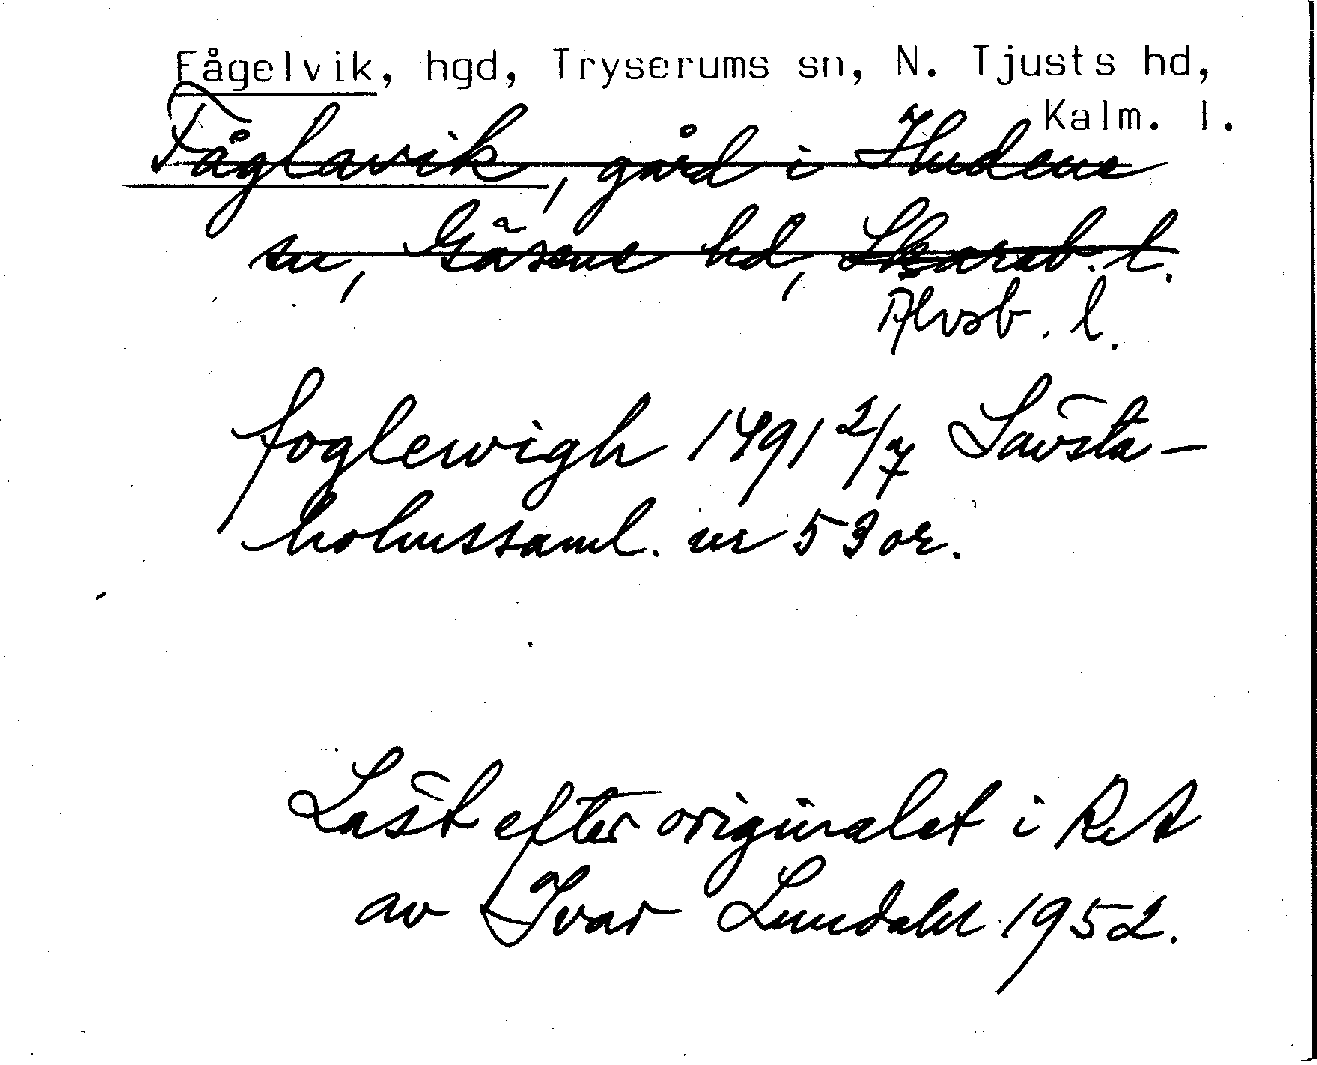 Fågelvik, hgd, Tryserums sn, N. Tjusts hd,
Kalm. l.
Fåglavik, gård i Hudene
sn, Gäsene hd, Skarab. l.
Älvsb. l.
foglewigh 1491 2/7 Sävsta-
holmssaml. nr 53 or.
Läst efter originalet i RA
av Ivar Lundahl 1952.